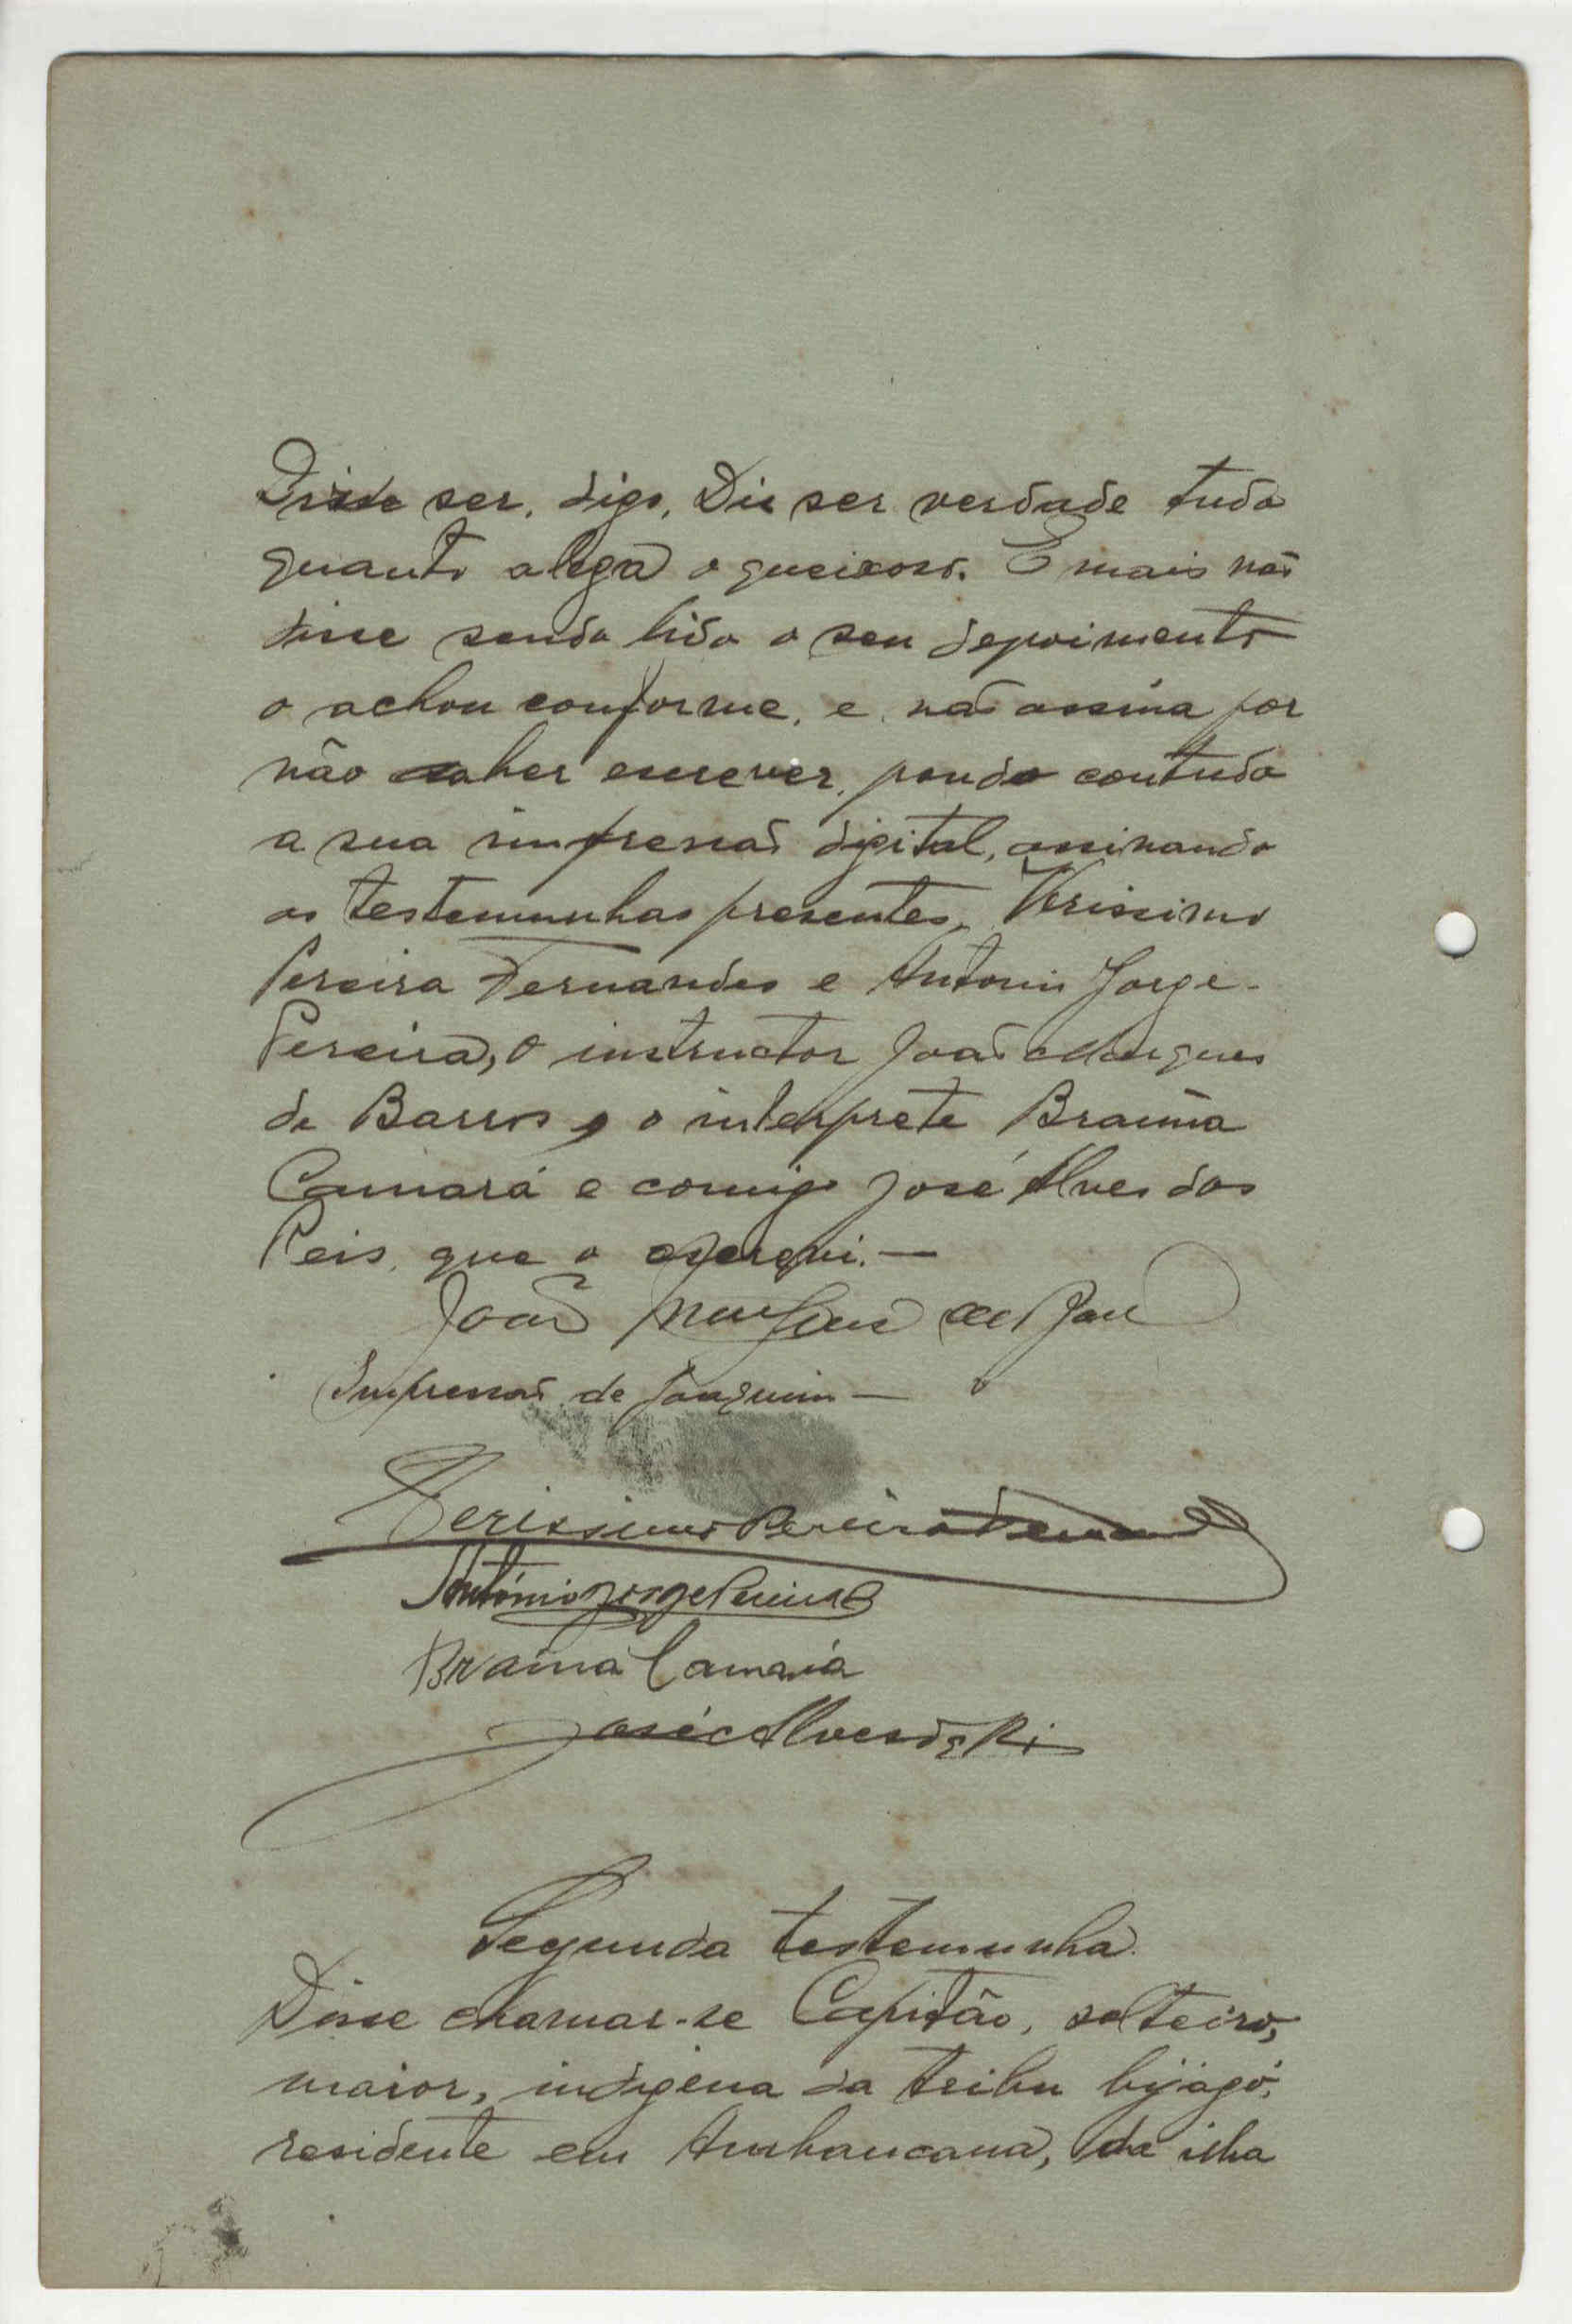 Disse ser, digo, Diz ser verdade tudo
quanto alega o queixoso. E mais não
disse sendo lido o seu depoimento
o achou conforme, e não assina por
não saber escrever, pondo contudo
a sua impressão digital, assinando
as testemunhas presentes, Verissimo
Pereira Fernandes e Antonio Jorge
Pereira, o instructor João Marques
de Barros, o interprete Braima
Camará e comigo José Alves dos
Reis, que o escrevi.—
João Marques de Barros
Impressão de Joaquim —
Verissimo Pereira Fernandes
António Jorge Pereira
Braima Camará
José Alves dos Reis
Segunda testemunha
Disse chamar-se Capitão, solteiro,
maior, indigena da tribu bijagó,
residente em Ambancana, da ilha